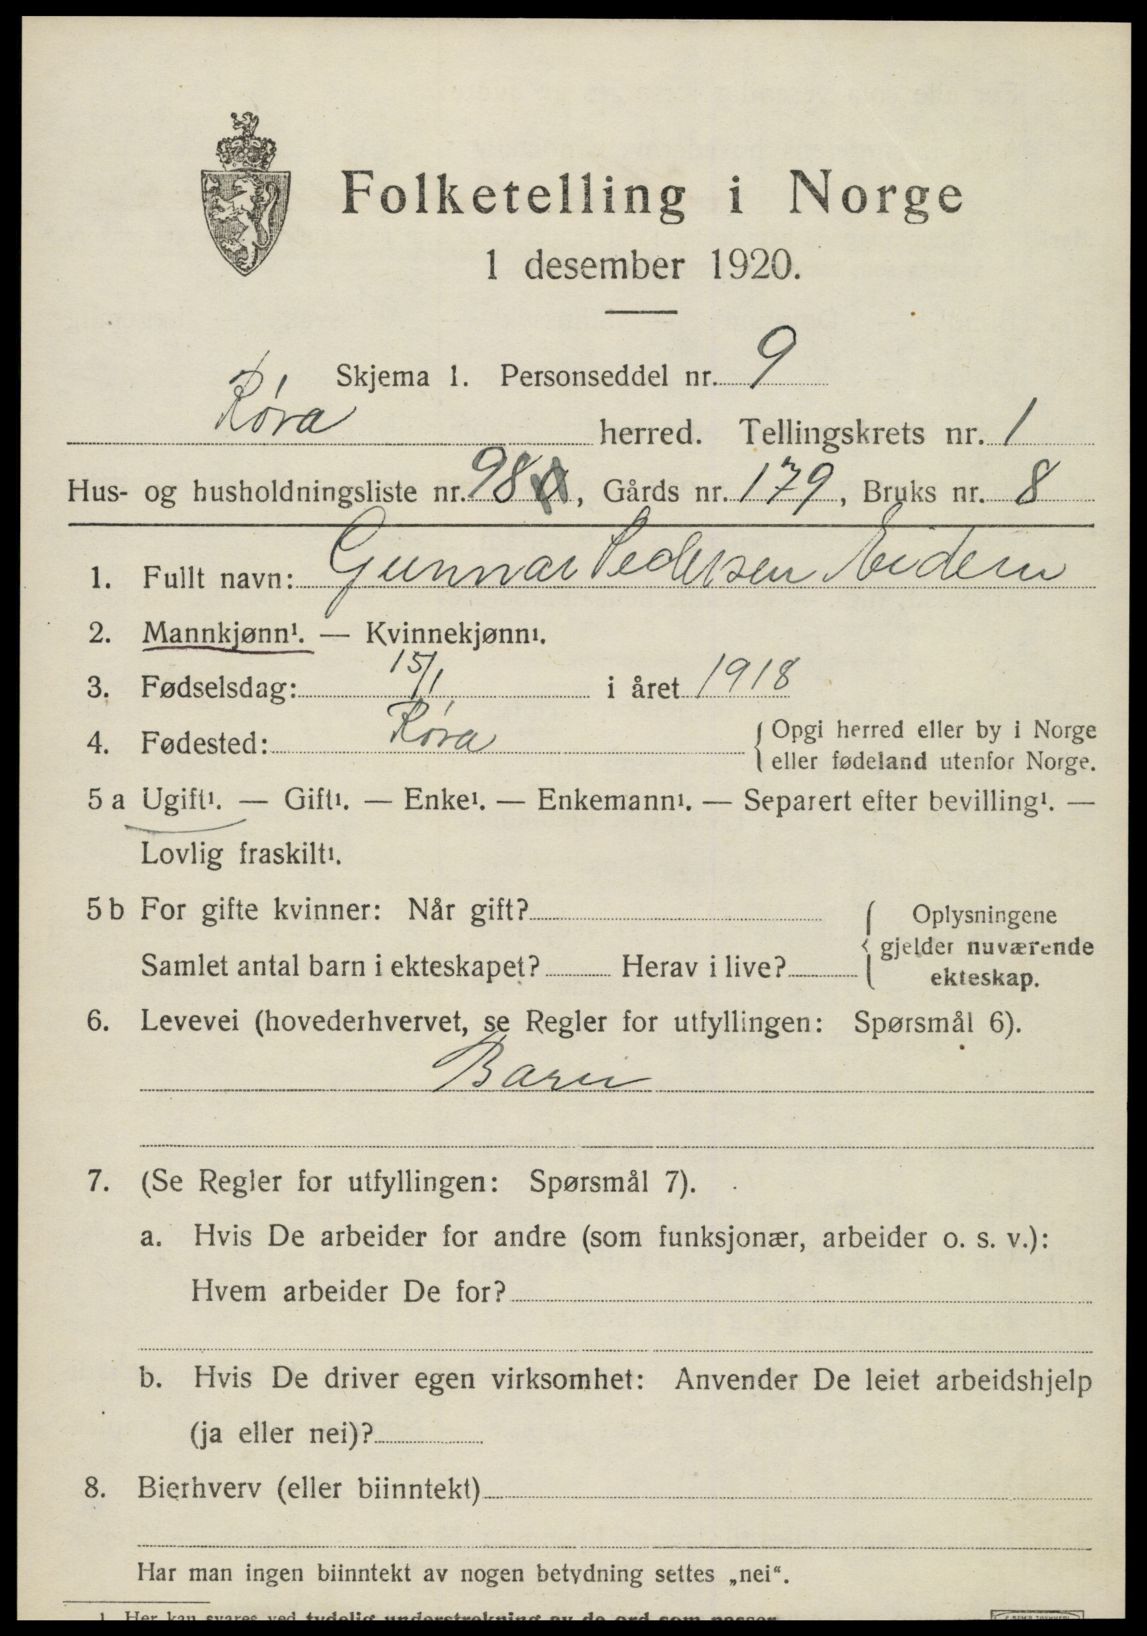 Folketelling i Norge
1 desember 1920.
Skjema 1. Personseddel nr. 9
Røra herred. Tellingskrets nr. 1
Hus- og husholdningsliste nr. 98, Gårds nr. 179, Bruks nr. 8
1. Fullt navn: Gunnar Pedersen Eidem
2. Mannkjønn¹. — Kvinnekjønn¹.
3. Fødselsdag: 15/1 i året 1918
4. Fødested: Røra { Opgi herred eller by i Norge
eller fødeland utenfor Norge.
5 a Ugift¹. — Gift¹. — Enke¹. — Enkemann¹. — Separert efter bevilling¹. —
Lovlig fraskilt¹.
5 b For gifte kvinner: Når gift? { Oplysningene
gjelder nuværende
Samlet antal barn i ekteskapet? Herav i live?
ekteskap.
6. Levevei (hovederhvervet, se Regler for utfyllingen: Spørsmål 6).
Barn
7. (Se Regler for utfyllingen: Spørsmål 7).
a. Hvis De arbeider for andre (som funksjonær, arbeider o. s. v.):
Hvem arbeider De for?
b. Hvis De driver egen virksomhet: Anvender De leiet arbeidshjelp
(ja eller nei)?
8. Bierhverv (eller biinntekt)
Har man ingen biinntekt av nogen betydning settes „nei“.
1 Her kan svares ved tydelig understrekning av de ord som passer.